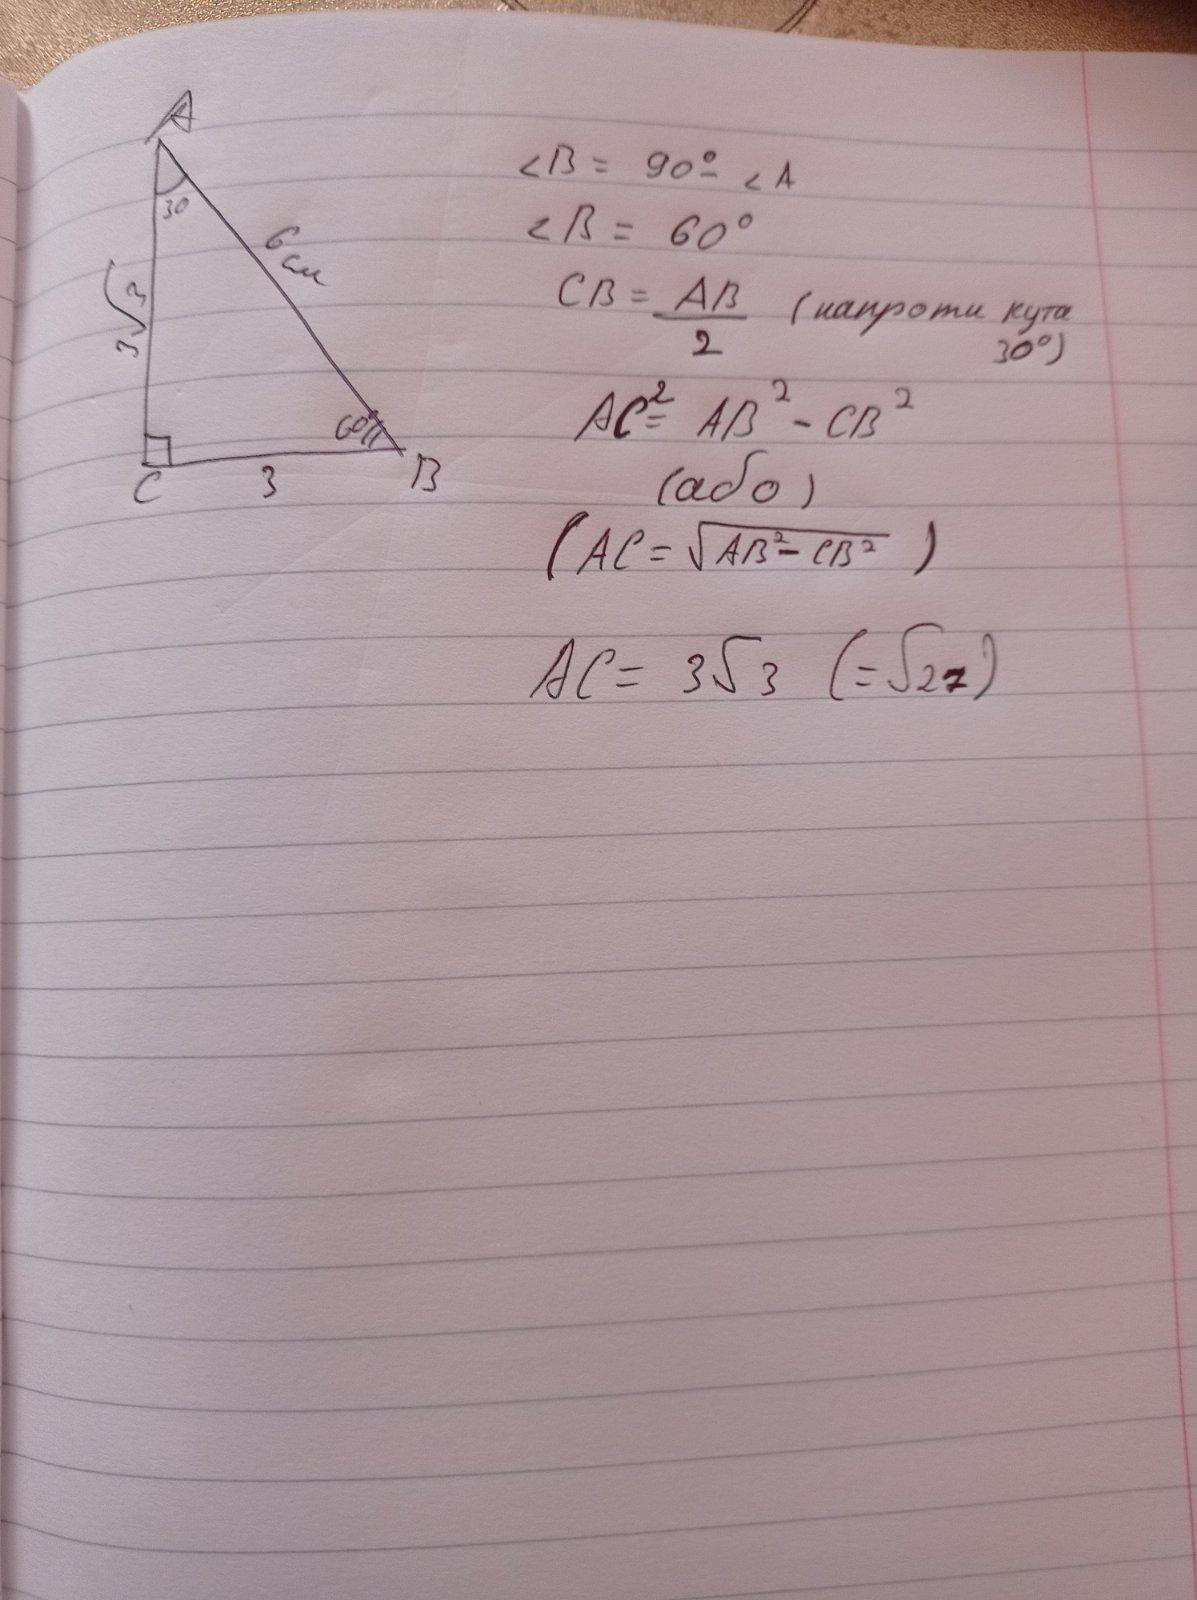 A
30
6
см
3√3
60°
C
3
B
∠B = 90° - ∠A
∠B = 60°
CB = AB/2 (напроти кута
30°)
AC² = AB² - CB²
(або)
(AC = √AB² - CB²)
AC = 3√3 (=√27)